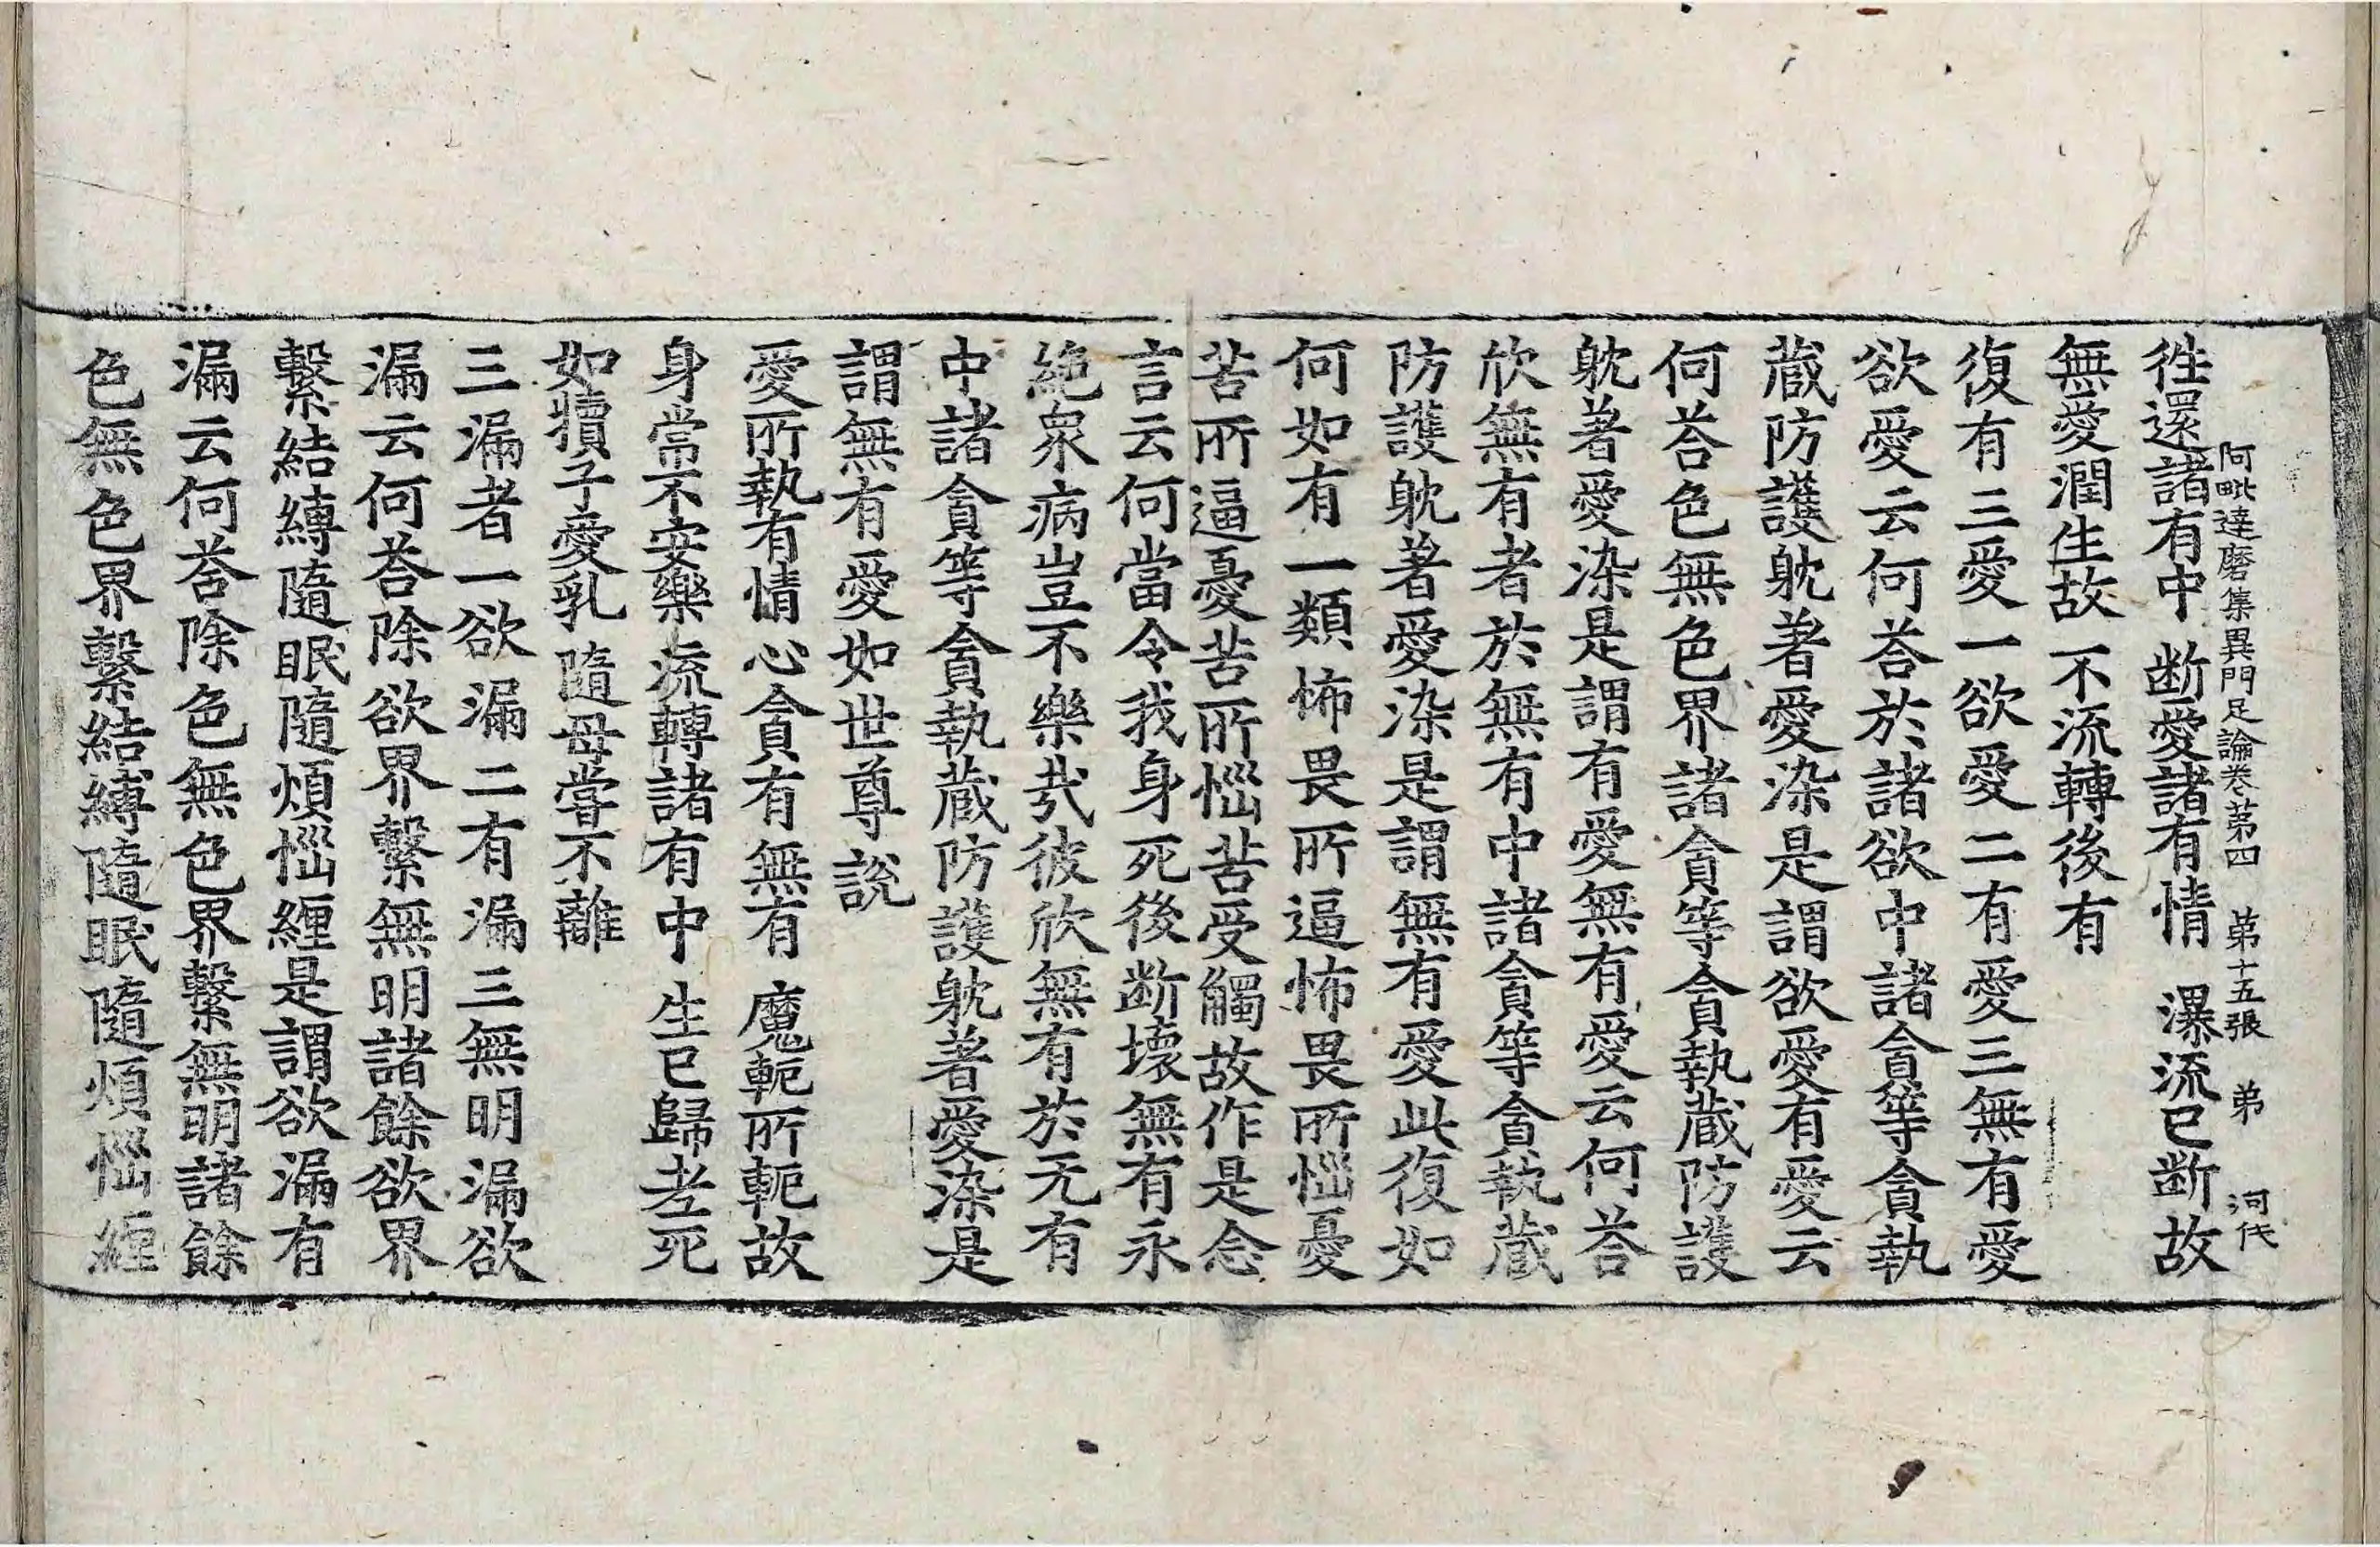 阿毗達磨集異門足論卷第四 第十五張 弟 河伐
徃還諸有中 断愛諸有情 瀑流已断故
無愛潤生故 不流轉後有
復有三愛一欲愛二有愛三無有愛
欲愛云何荅於諸欲中諸貪等貪執
蔵防護躭著愛染是謂欲愛有愛云
何荅色無色界諸貪等貪執蔵防護
躭著愛染是謂有愛無有愛云何荅
欣無有者於無有中諸貪等貪執蔵
防護躭著愛染是謂無有愛此復如
何如有一類怖畏所逼怖畏所惱憂
苦所逼憂苦所惱苦受觸故作是念
言云何當令我身死後断壞無有永
絶衆病豈不樂㦲彼欣無有於无有
中諸貪等貪執蔵防護躭著愛染是
謂無有愛如世尊說
愛所執有情 心貪有無有 魔軛所軛故
身常不安樂 流轉諸有中 生已歸老死
如犢子愛乳 隨母甞不離
三漏者一欲漏二有漏三無明漏欲
漏云何荅除欲界繫無明諸餘欲界
繫結縛隨眠隨煩惱纏是謂欲漏有
漏云何荅除色無色界繫無明諸餘
色無色界繫結縛隨眠隨煩惱纏